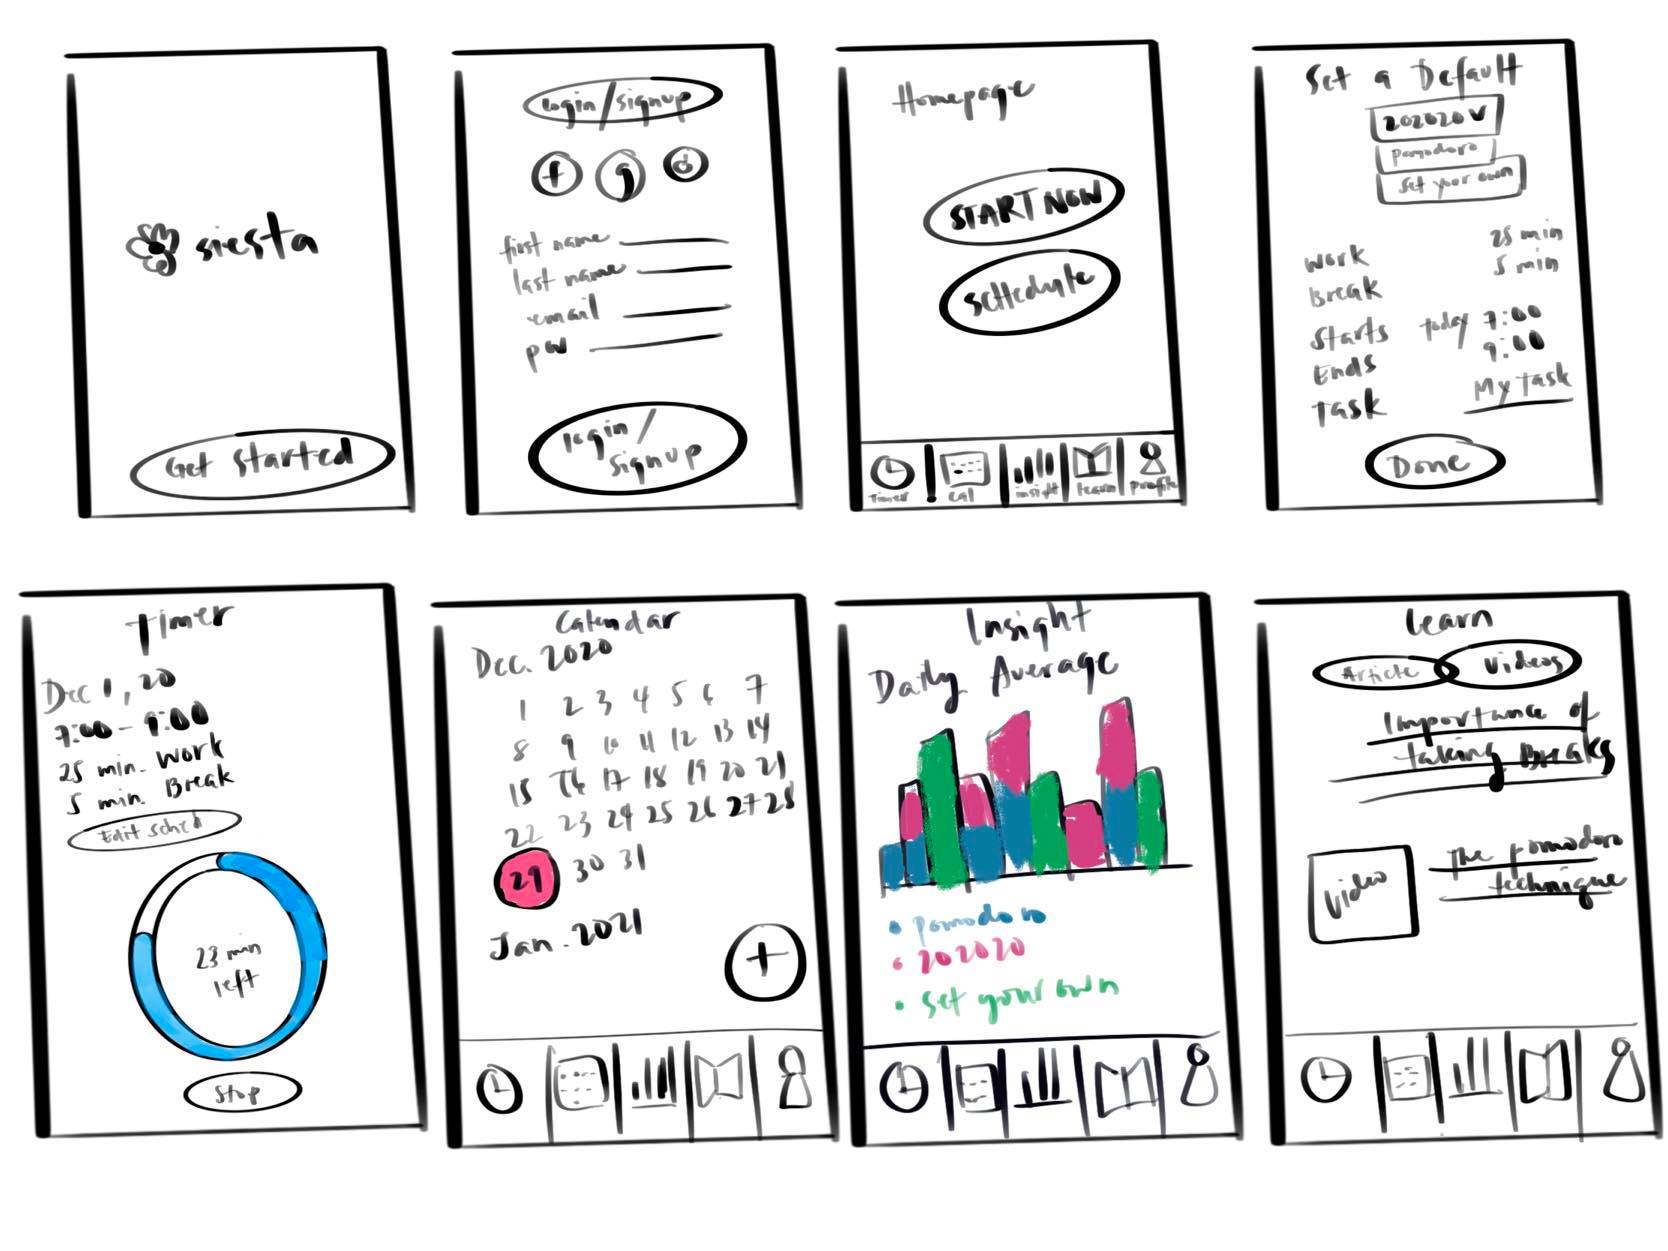 siesta
Get started
login/signup
f g
first name
last name
email
pw
login/
signup
Homepage
START NOW
SCHEDULE
timer cal insight learn profile
Set a Default
202020 V
pomodoro
set your own
Work 25 min
Break 5 min
Starts today 7:00
Ends 9:00
Task My Task
Done
Timer
Dec 1, 20
7:00 - 9:00
25 min. Work
5 min. Break
Edit sched
23 min
left
Stop
Calendar
Dec. 2020
1 2 3 4 5 6 7
8 9 10 11 12 13 14
15 16 17 18 19 20 21
22 23 24 25 26 27 28
29 30 31
Jan. 2021
+
Insight
Daily Average
• pomodoro
• 202020
• set your own
Learn
Article Videos
Importance of
taking Breaks
Video
The pomodoro
technique